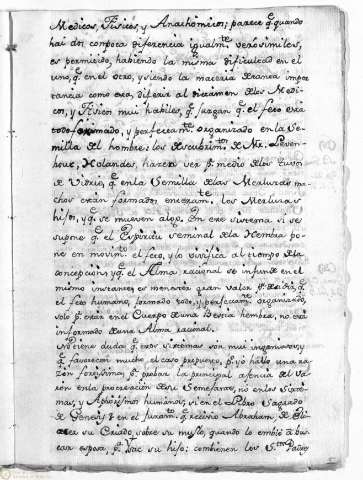 Medicos, Fisicos, y Anathomicos; parece q.e quando
hai dos con poca diferencia igualm.te verosimiles,
es permitido, habiendo la misma dificultad en el
uno, q.e en el otro, y siendo la materia de tanta impor
tancia como esta, diferir al dictamen de los Medi-
cos, y Fisicos mui habiles, q.e juzgan q.e el feto está
todo formado, y perfectam.te organizado en la Se-
milla del hombre: los descubrim.tos de Mr. Leven-
houc, Holandes, hacen ver p.r medio de los tubos
de Vidrio, q.e en la Semilla de las Merluzas ma-
chos están formados enteram.te los Merluzas
hijos, y q.e se mueven algo. En este sistema si se
supone q.e el Espiritu seminal de la Hembra po-
ne en movim.to el feto, y lo vivifica al tiempo de la
concepcion; y q.e el Alma racional se infunde en el
mismo instante; es menester gran valor p.a decir, q.e
el feto humano, formado todo, y perfectam.te organizado,
solo p.r estar en el Cuerpo de una Bestia hembra, no está
informado de una Alma racional.
No tiene duda, q.e estos sistemas son mui ingeniosos, y
q.e favorecen mucho, el caso propuesto, p.o yo hallo una ra-
zon fortissima, p.a probar la principal asencia del Va-
ron en la procreacion de su Semejante, no en los Siste-
mas, y Aphorismos humanos; si en el Libro Sagrado
de Genesis; en el juram.to q.e recivió Abraham, de Elie-
zer su Criado, sobre su muslo, quando lo embió a bus-
car esposa, p.a Ysac su hijo; combienen los S.tos Padres